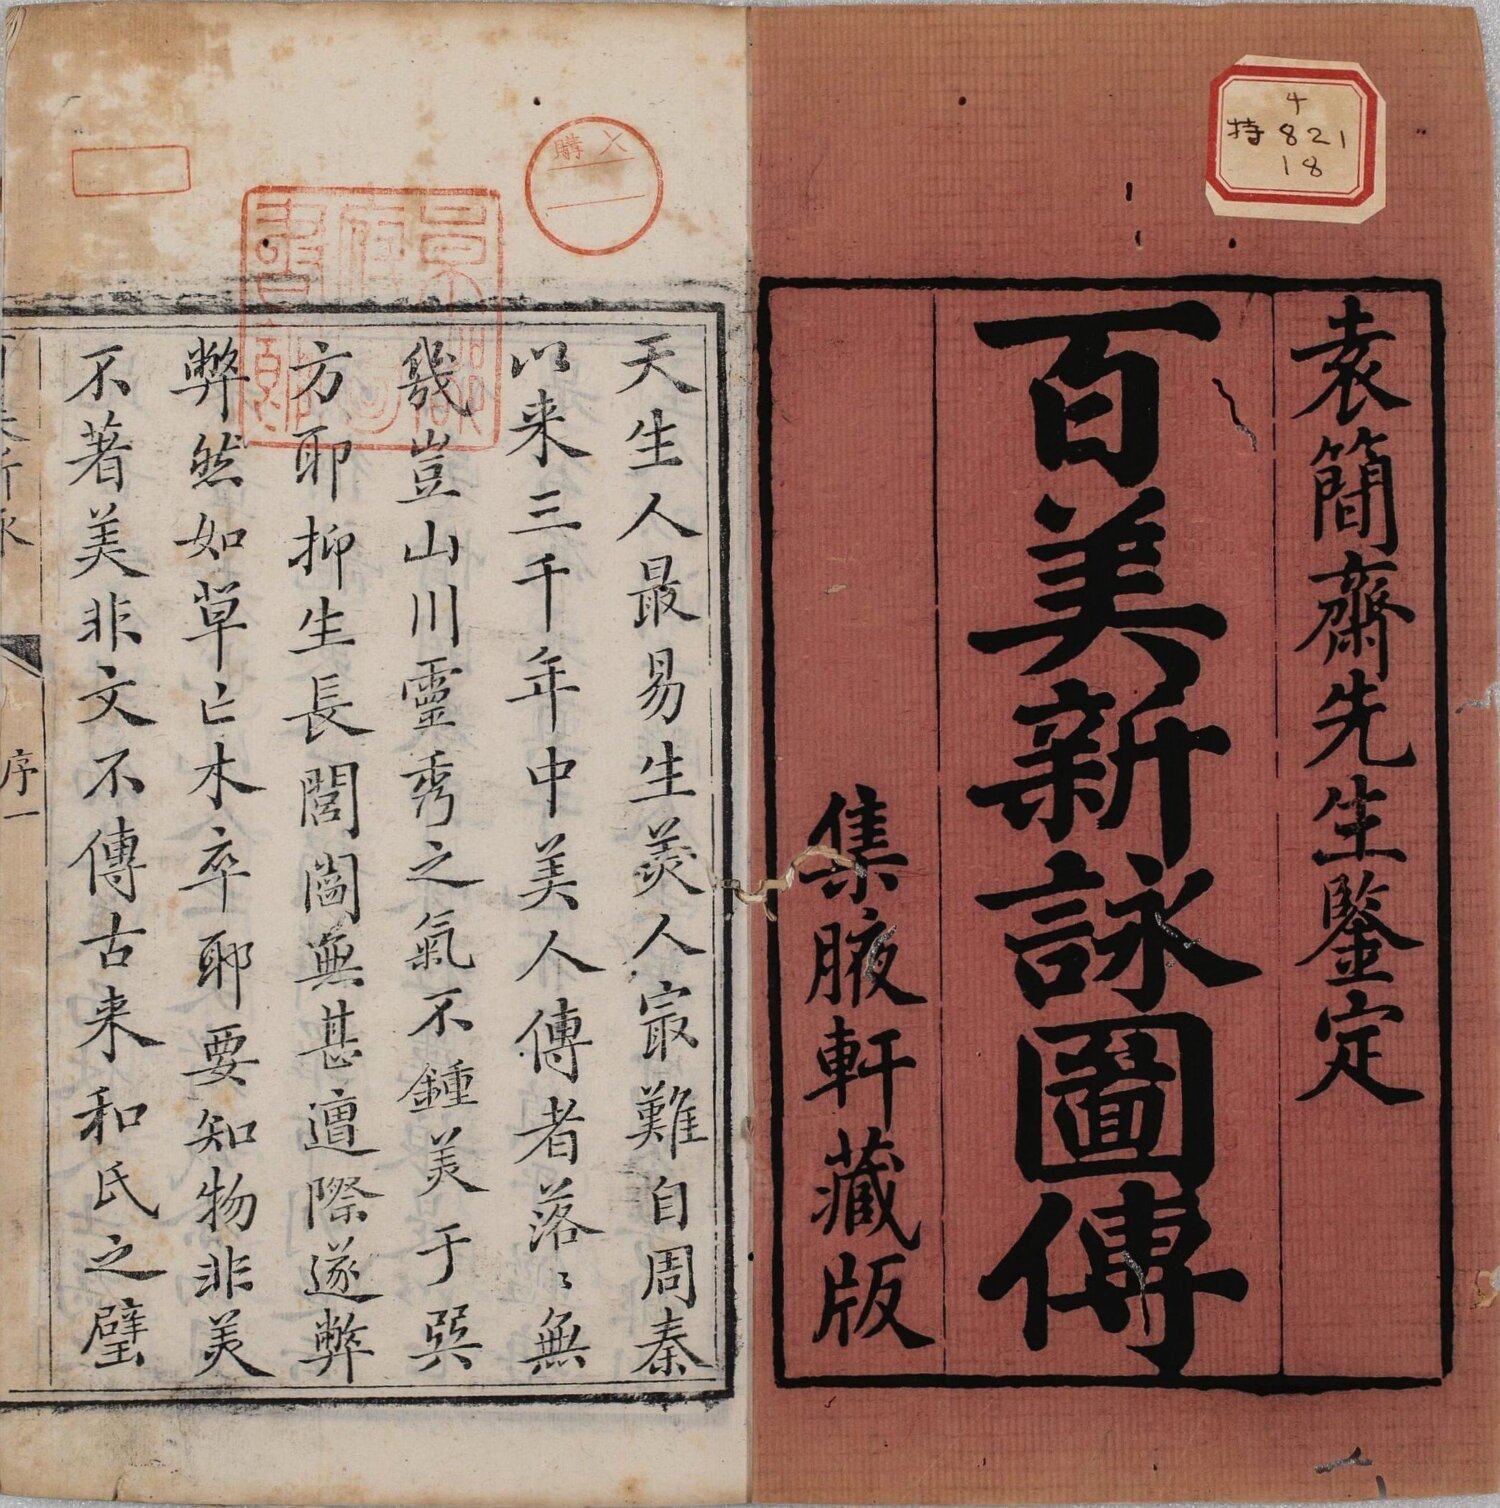 4
特821
18
袁簡齋先生鑒定
百美新詠圖傳
集腋軒藏版
購入
天生人最易生羙人㝡難自周秦
以来三千年中美人傳者落〻無
幾豈山川靈秀之氣不鍾羙于巽
方耶抑生長閭閻無甚遭際遂弊
弊然如草亡木卒耶要知物非羙
不著美非文不傳古来和氏之璧
序一